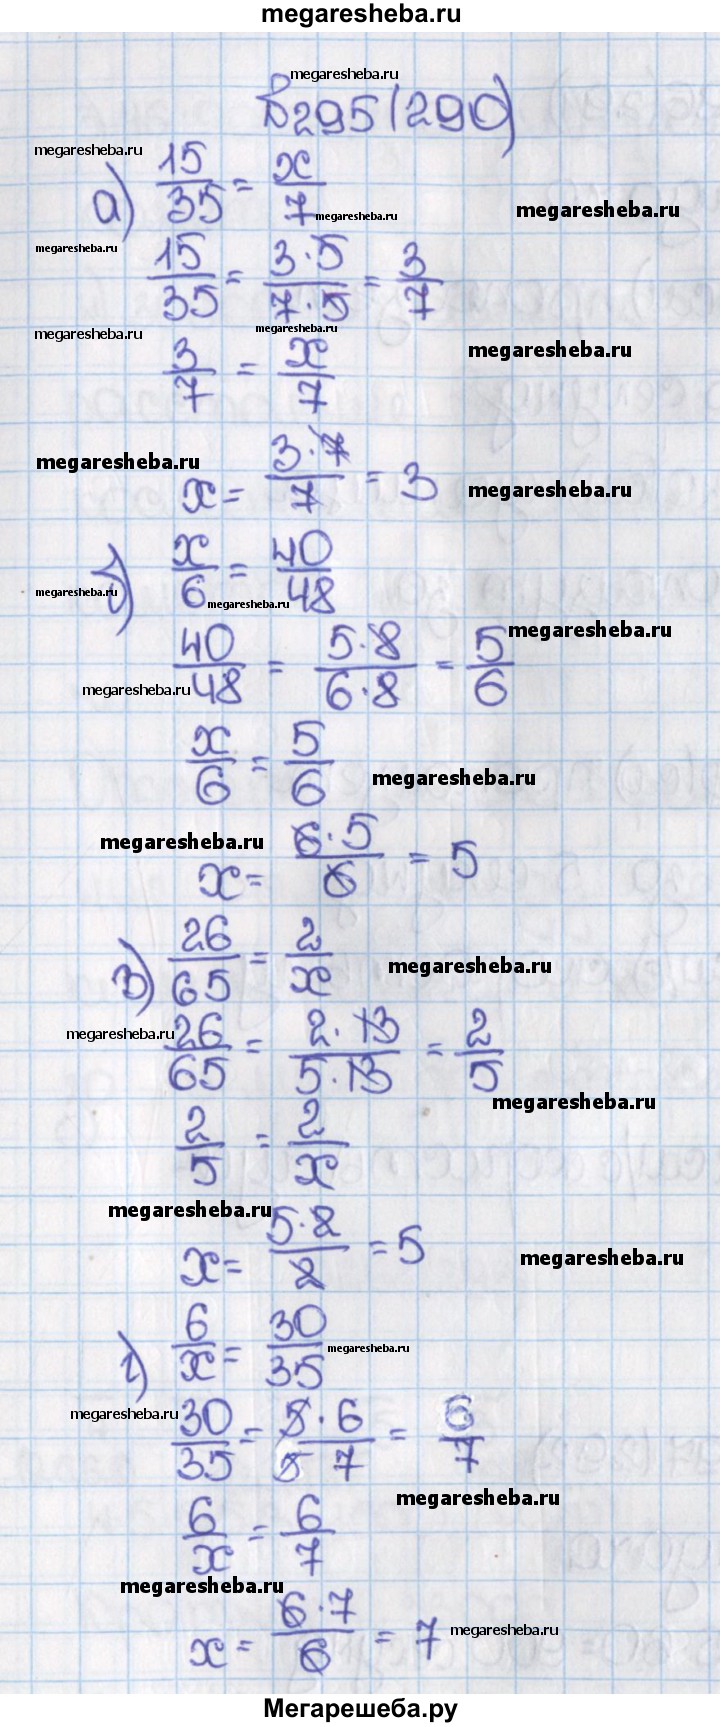 megaresheba.ru
megaresheba.ru
№295(290)
megaresheba.ru
а) 15/35 = x/7
megaresheba.ru
megaresheba.ru
megaresheba.ru
15/35 = 3·5/7·5 = 3/7
megaresheba.ru
megaresheba.ru
3/7 = x/7
megaresheba.ru
megaresheba.ru
x = 3·7/7 = 3
megaresheba.ru
б) x/6 = 40/48
megaresheba.ru
megaresheba.ru
megaresheba.ru
40/48 = 5·8/6·8 = 5/6
megaresheba.ru
x/6 = 5/6
megaresheba.ru
megaresheba.ru
x = 6·5/6 = 5
в) 26/65 = 2/x
megaresheba.ru
megaresheba.ru
26/65 = 2·13/5·13 = 2/5
megaresheba.ru
2/5 = 2/x
megaresheba.ru
x = 5·2/2 = 5
megaresheba.ru
г) 6/x = 30/35
megaresheba.ru
megaresheba.ru
30/35 = 5·6/5 7 = 6/7
megaresheba.ru
6/x = 6/7
megaresheba.ru
x = 6·7/6 = 7
megaresheba.ru
Мегарешеба.ру